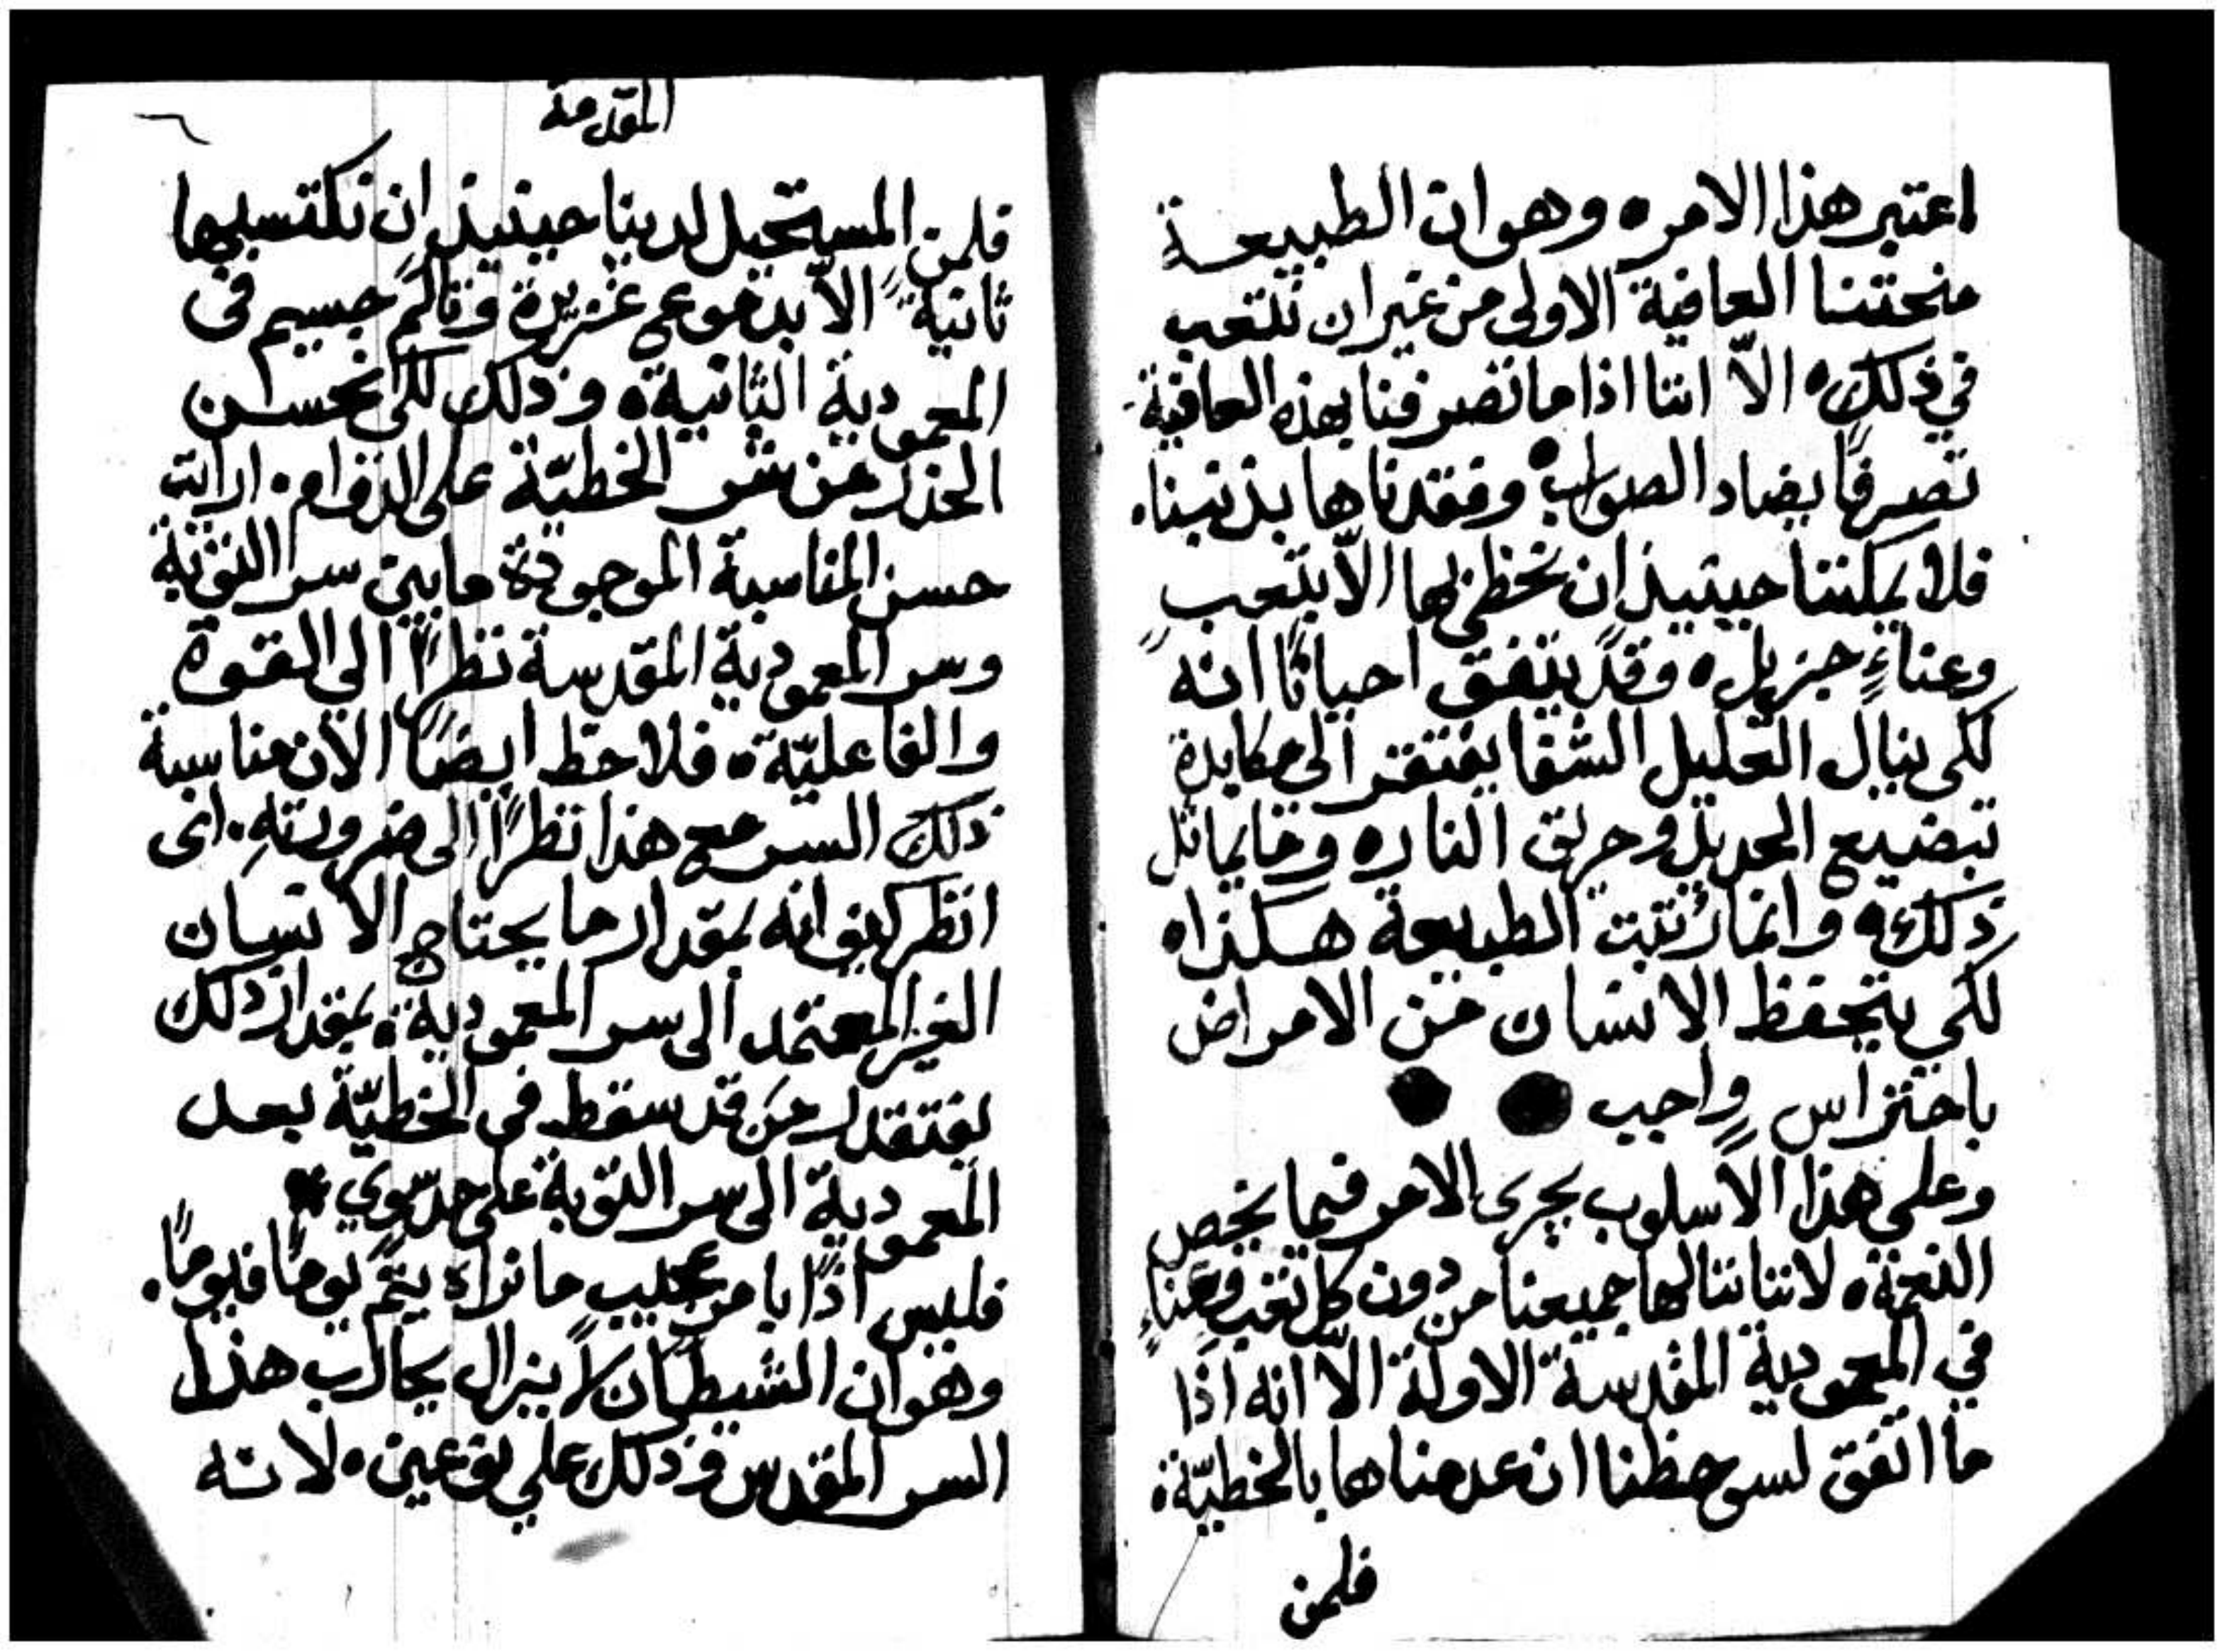 اعتبر هذا الامر ٥ وهو ان الطبيعة
منحتنا العافية الاولى من غير ان نتعب
في ذلك ٥ الاّ اننا اذا ما تصرفنا بهذه العافية
تصرفًا يضاد الصواب ٥ وفقدناها بذنبنا.
فلا يمكننا حينيذٍ ان نحظى بها الاّ بتعب
وعناءٍ جزيل ٥ وقد يتفق احيانًا انه
لكي ينال العليل الشفا يفتقر الى مكابدة
تبضيع الحديد وحريق النار ٥ وما يماثل
ذلك ٥ وانما رتبت الطبيعة هكذا ٥
لكي يتحفظ الانسان من الامراض
باحتراسٍ واجب
وعلى هذا الاسلوب يجرى الامر فيما يخص
النعمة ٥ لاننا ننالها جميعنا من دون كل تعب وعناءٍ
في المعمودية المقدسة الاولة الاّ انه اذا
ما اتفق لسو حظنا ان عدمناها بالخطيّة ٥
فلمن
المقدمة
فلمن المستحيل لدينا حينيذٍ ان نكتسبها
ثانيةً الاّ بدموع غزيرة وتالم جسيم في
المعمودية الثانية ٥ وذلك لكي نحسن
الحذر من شر الخطيّة على الدوام. ارايت
حسن المناسبة الموجودة ما بين سر التوبة
وسر المعمودية المقدسة نظرًا الى القوة
والفاعليّة ٥ فلاحظ ايضًا الان مناسبة
ذلك السر مع هذا نظرًا الى ضرورتهِ. اى
انظر كيف انه بمقدار ما يحتاج الانسان
الغير المعتمد الى سر المعمودية ٥ بمقدار ذلك
يفتقر من قد سقط في الخطيّة بعد
المعمودية الى سر التوبة على حدٍ سوي
فليس اذًا يا من عجيب ما نراه يتم يومًا فيومًا.
وهو ان الشيطان لا يزال يحارب هذا
السر المقدس وذلك على نوعين ٥ لانه